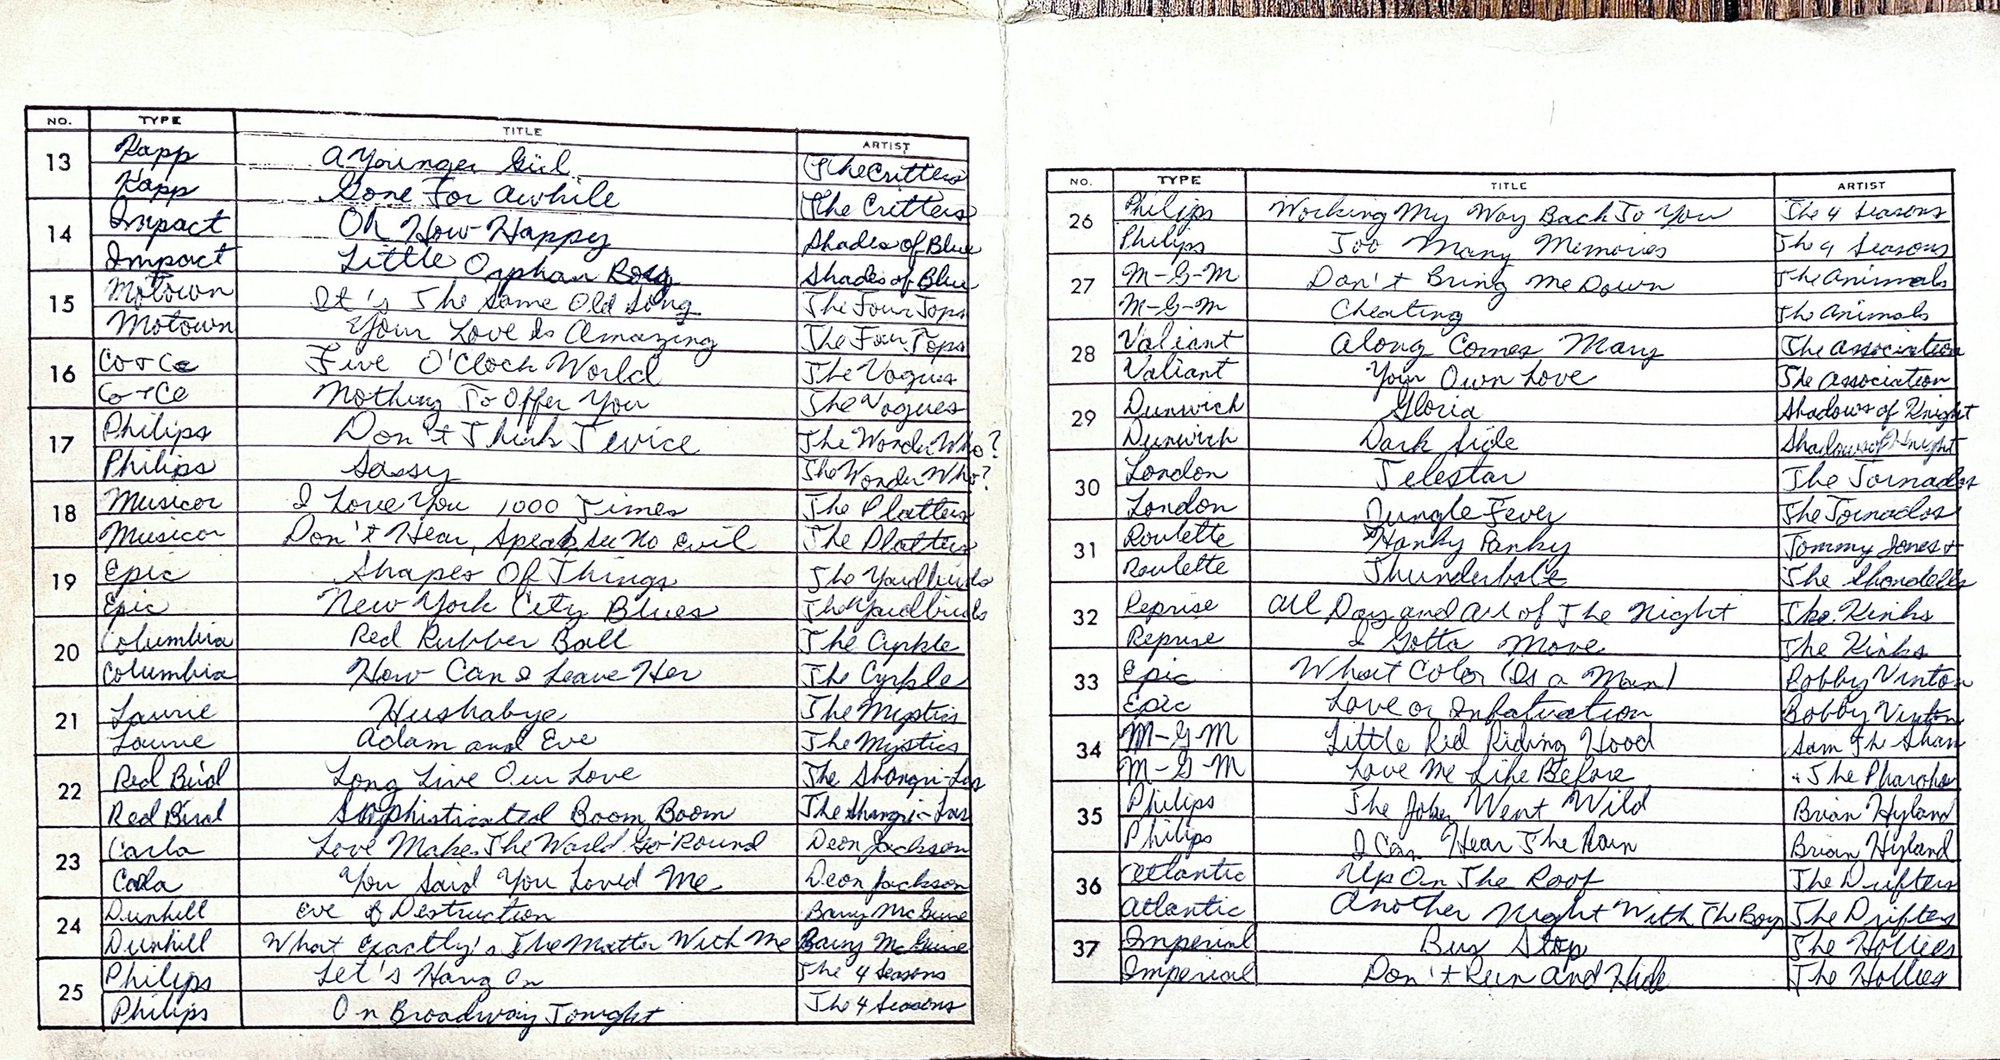 NO. TYPE TITLE ARTIST
13 Kapp A Younger Girl The Critters
Kapp Gone For Awhile The Critters
14 Impact Oh How Happy Shades of Blue
Impact Little Orphan Boy Shades of Blue
15 Motown It's The Same Old Song The Four Tops
Motown Your Love Is Amazing The Four Tops
16 Co & Ce Five O'Clock World The Vogues
Co & Ce Nothing To Offer You The Vogues
17 Philips Don't Think Twice The Wonder Who?
Philips Sassy The Wonder Who?
18 Musicor I Love You 1000 Times The Platters
Musicor Don't Hear, Speak, See No Evil The Platters
19 Epic Shapes Of Things The Yardbirds
Epic New York City Blues The Yardbirds
20 Columbia Red Rubber Ball The Cyrkle
Columbia How Can I Leave Her The Cyrkle
21 Laurie Hushabye The Mystics
Laurie Adam and Eve The Mystics
22 Red Bird Long Live Our Love The Shangri-Las
Red Bird Sophisticated Boom Boom The Shangri-Las
23 Carla Love Makes The World Go 'Round Deon Jackson
Carla You Said You Loved Me Deon Jackson
24 Dunhill Eve of Destruction Barry McGuire
Dunhill What Exactly's The Matter With Me Barry McGuire
25 Philips Let's Hang On The 4 Seasons
Philips On Broadway Tonight The 4 Seasons
NO. TYPE TITLE ARTIST
26 Philips Working My Way Back To You The 4 Seasons
Philips Too Many Memories The 4 Seasons
27 M-G-M Don't Bring Me Down The Animals
M-G-M Cheating The Animals
28 Valiant Along Comes Mary The Association
Valiant Your Own Love The Association
29 Dunwich Gloria Shadows of Knight
Dunwich Dark Side Shadows of Knight
30 London Telestar The Tornados
London Jungle Fever The Tornados
31 Roulette Hanky Panky Tommy Jones +
Roulette Thunderbolt The Shondells
32 Reprise All Day and All of The Night The Kinks
Reprise I Gotta Move The Kinks
33 Epic What Color (Is a Man) Bobby Vinton
Epic Love or Infatuation Bobby Vinton
34 M-G-M Little Red Riding Hood Sam The Sham
M-G-M Love Me Like Before + The Pharohs
35 Philips The Joker Went Wild Brian Hyland
Philips I Can Hear The Rain Brian Hyland
36 Atlantic Up On The Roof The Drifters
Atlantic Another Night With The Boys The Drifters
37 Imperial Bus Stop The Hollies
Imperial Don't Run and Hide The Hollies